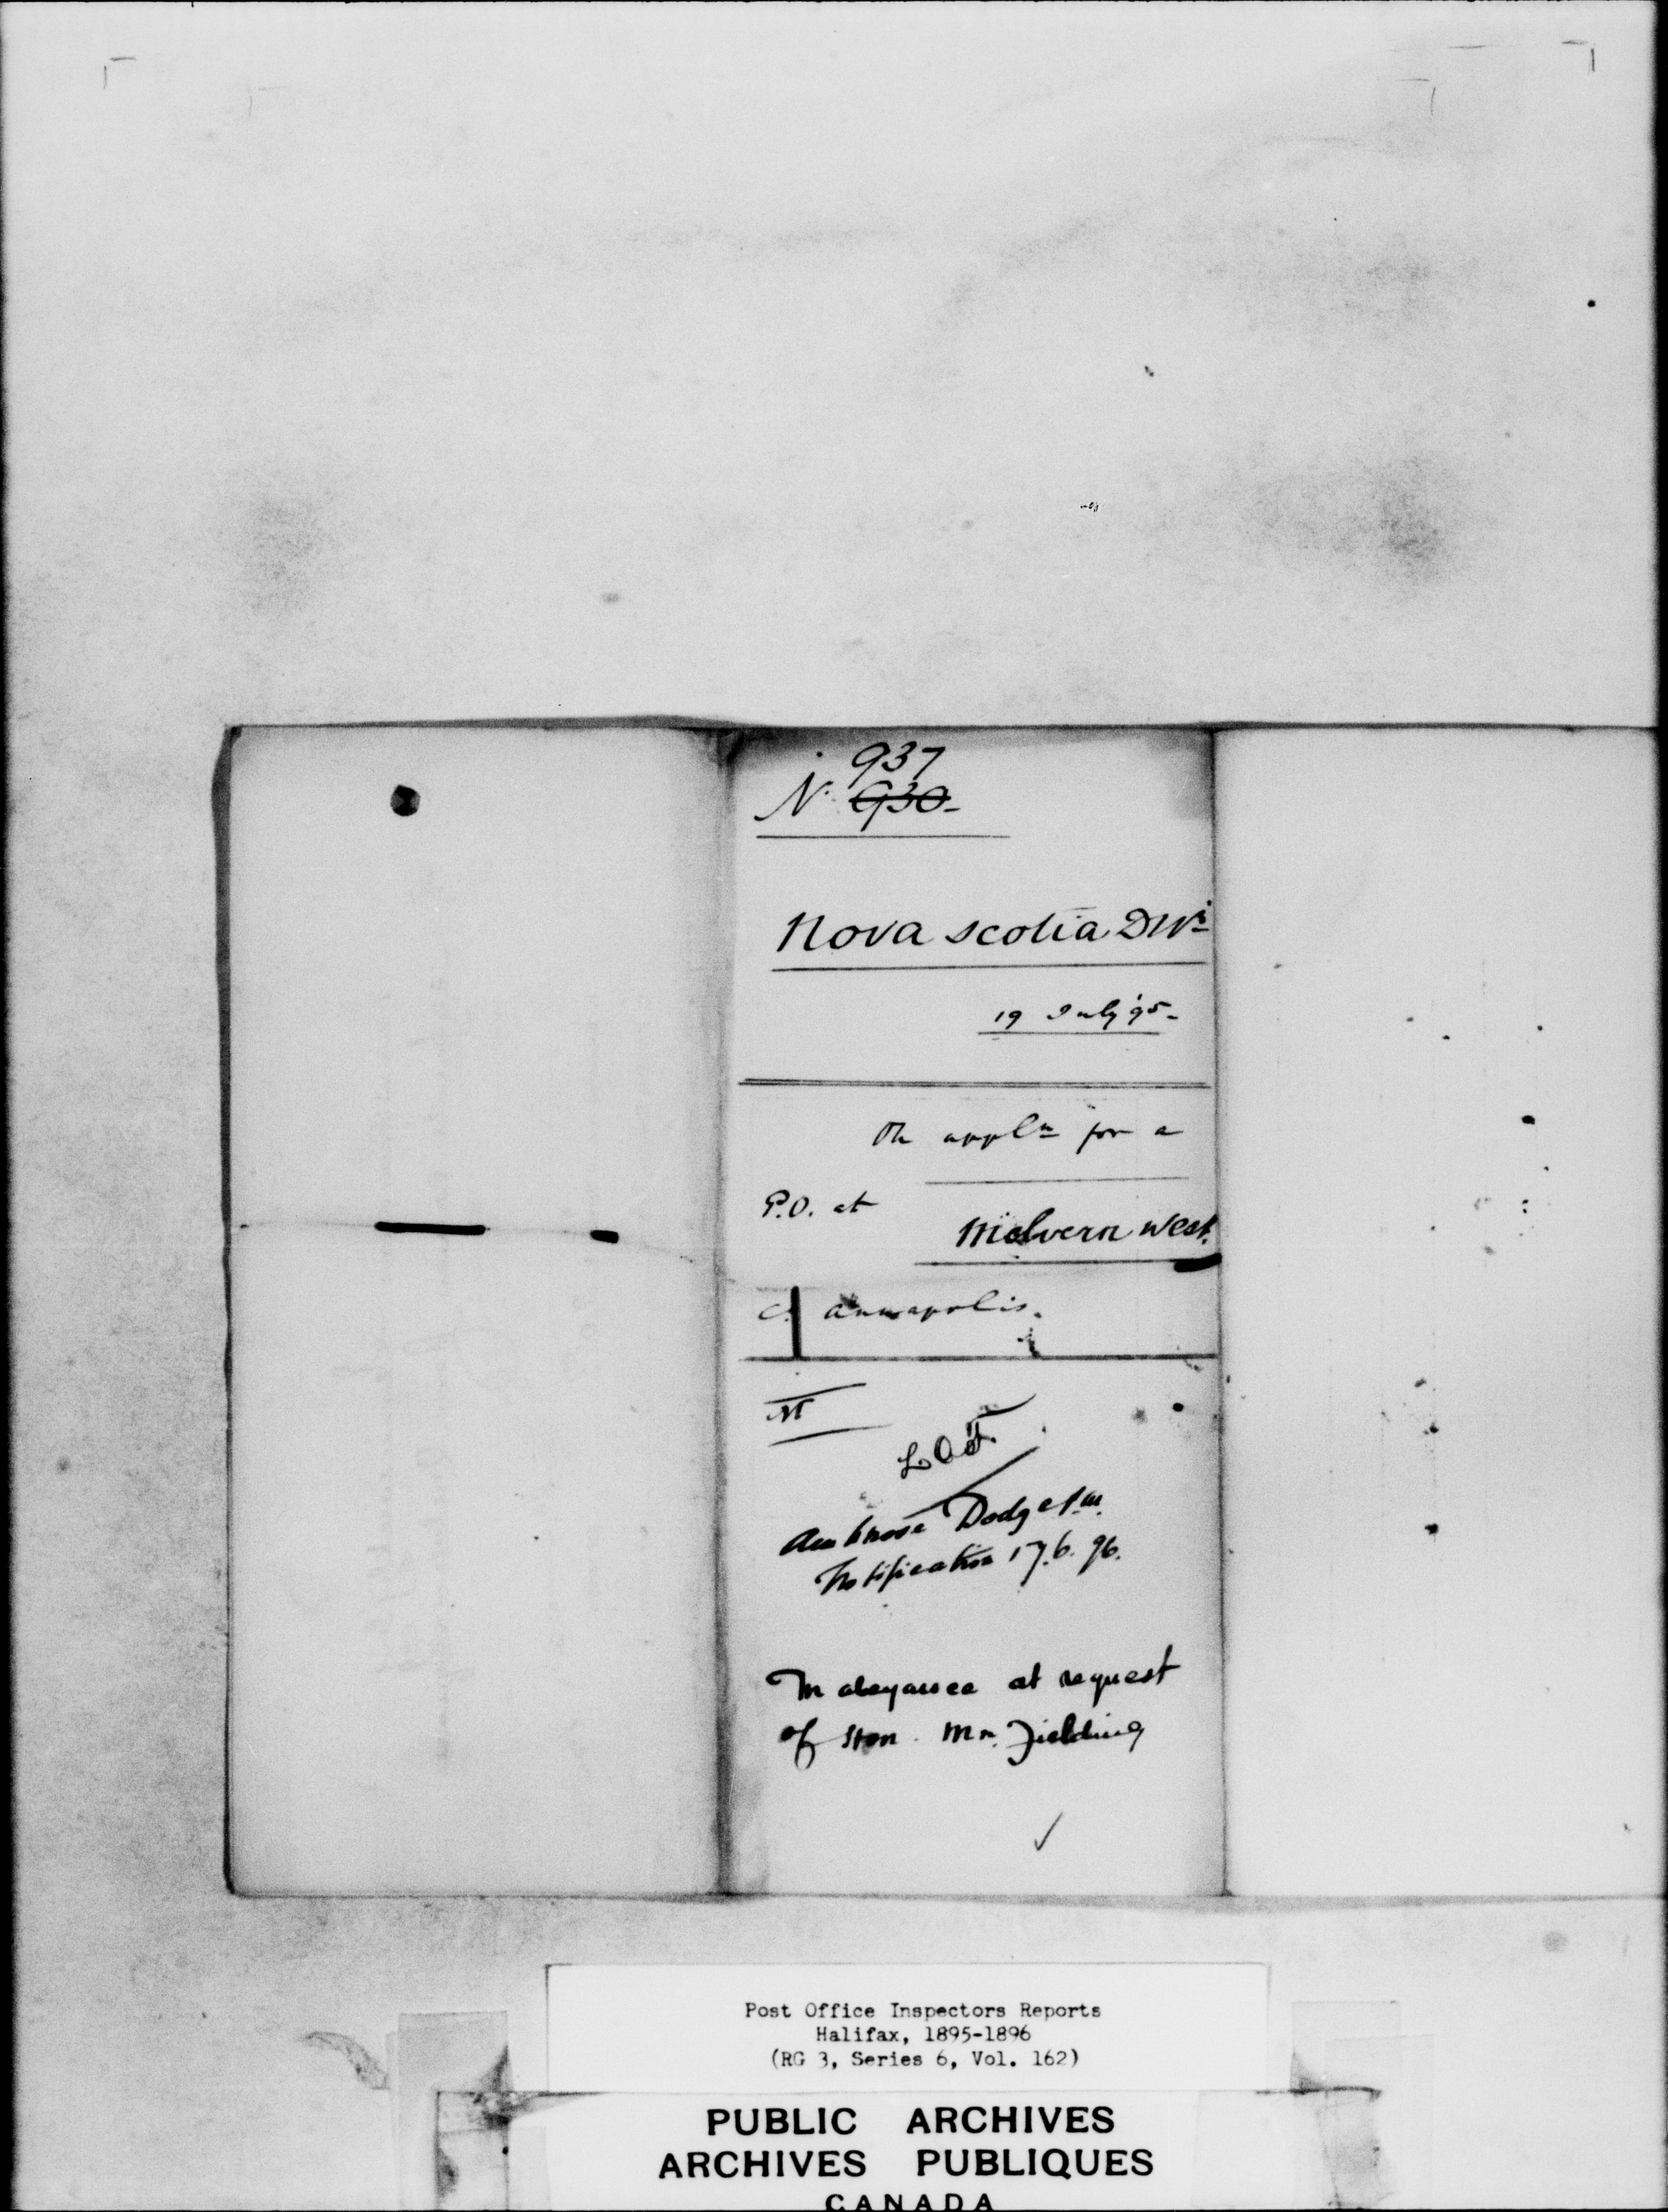 937
No. 930-
Nova Scotia Divn
19 July '95-
On appln for a
P.O. at
Melvern West.
C. Annapolis.
Ambrose Dodge P.M.
Notification 17.6.96.
In abeyance at request
of Hon. Mr. Fielding
Post Office Inspectors Reports
Halifax, 1895-1896
(RG 3, Series 6, Vol. 162)
PUBLIC ARCHIVES
ARCHIVES PUBLIQUES
CANADA